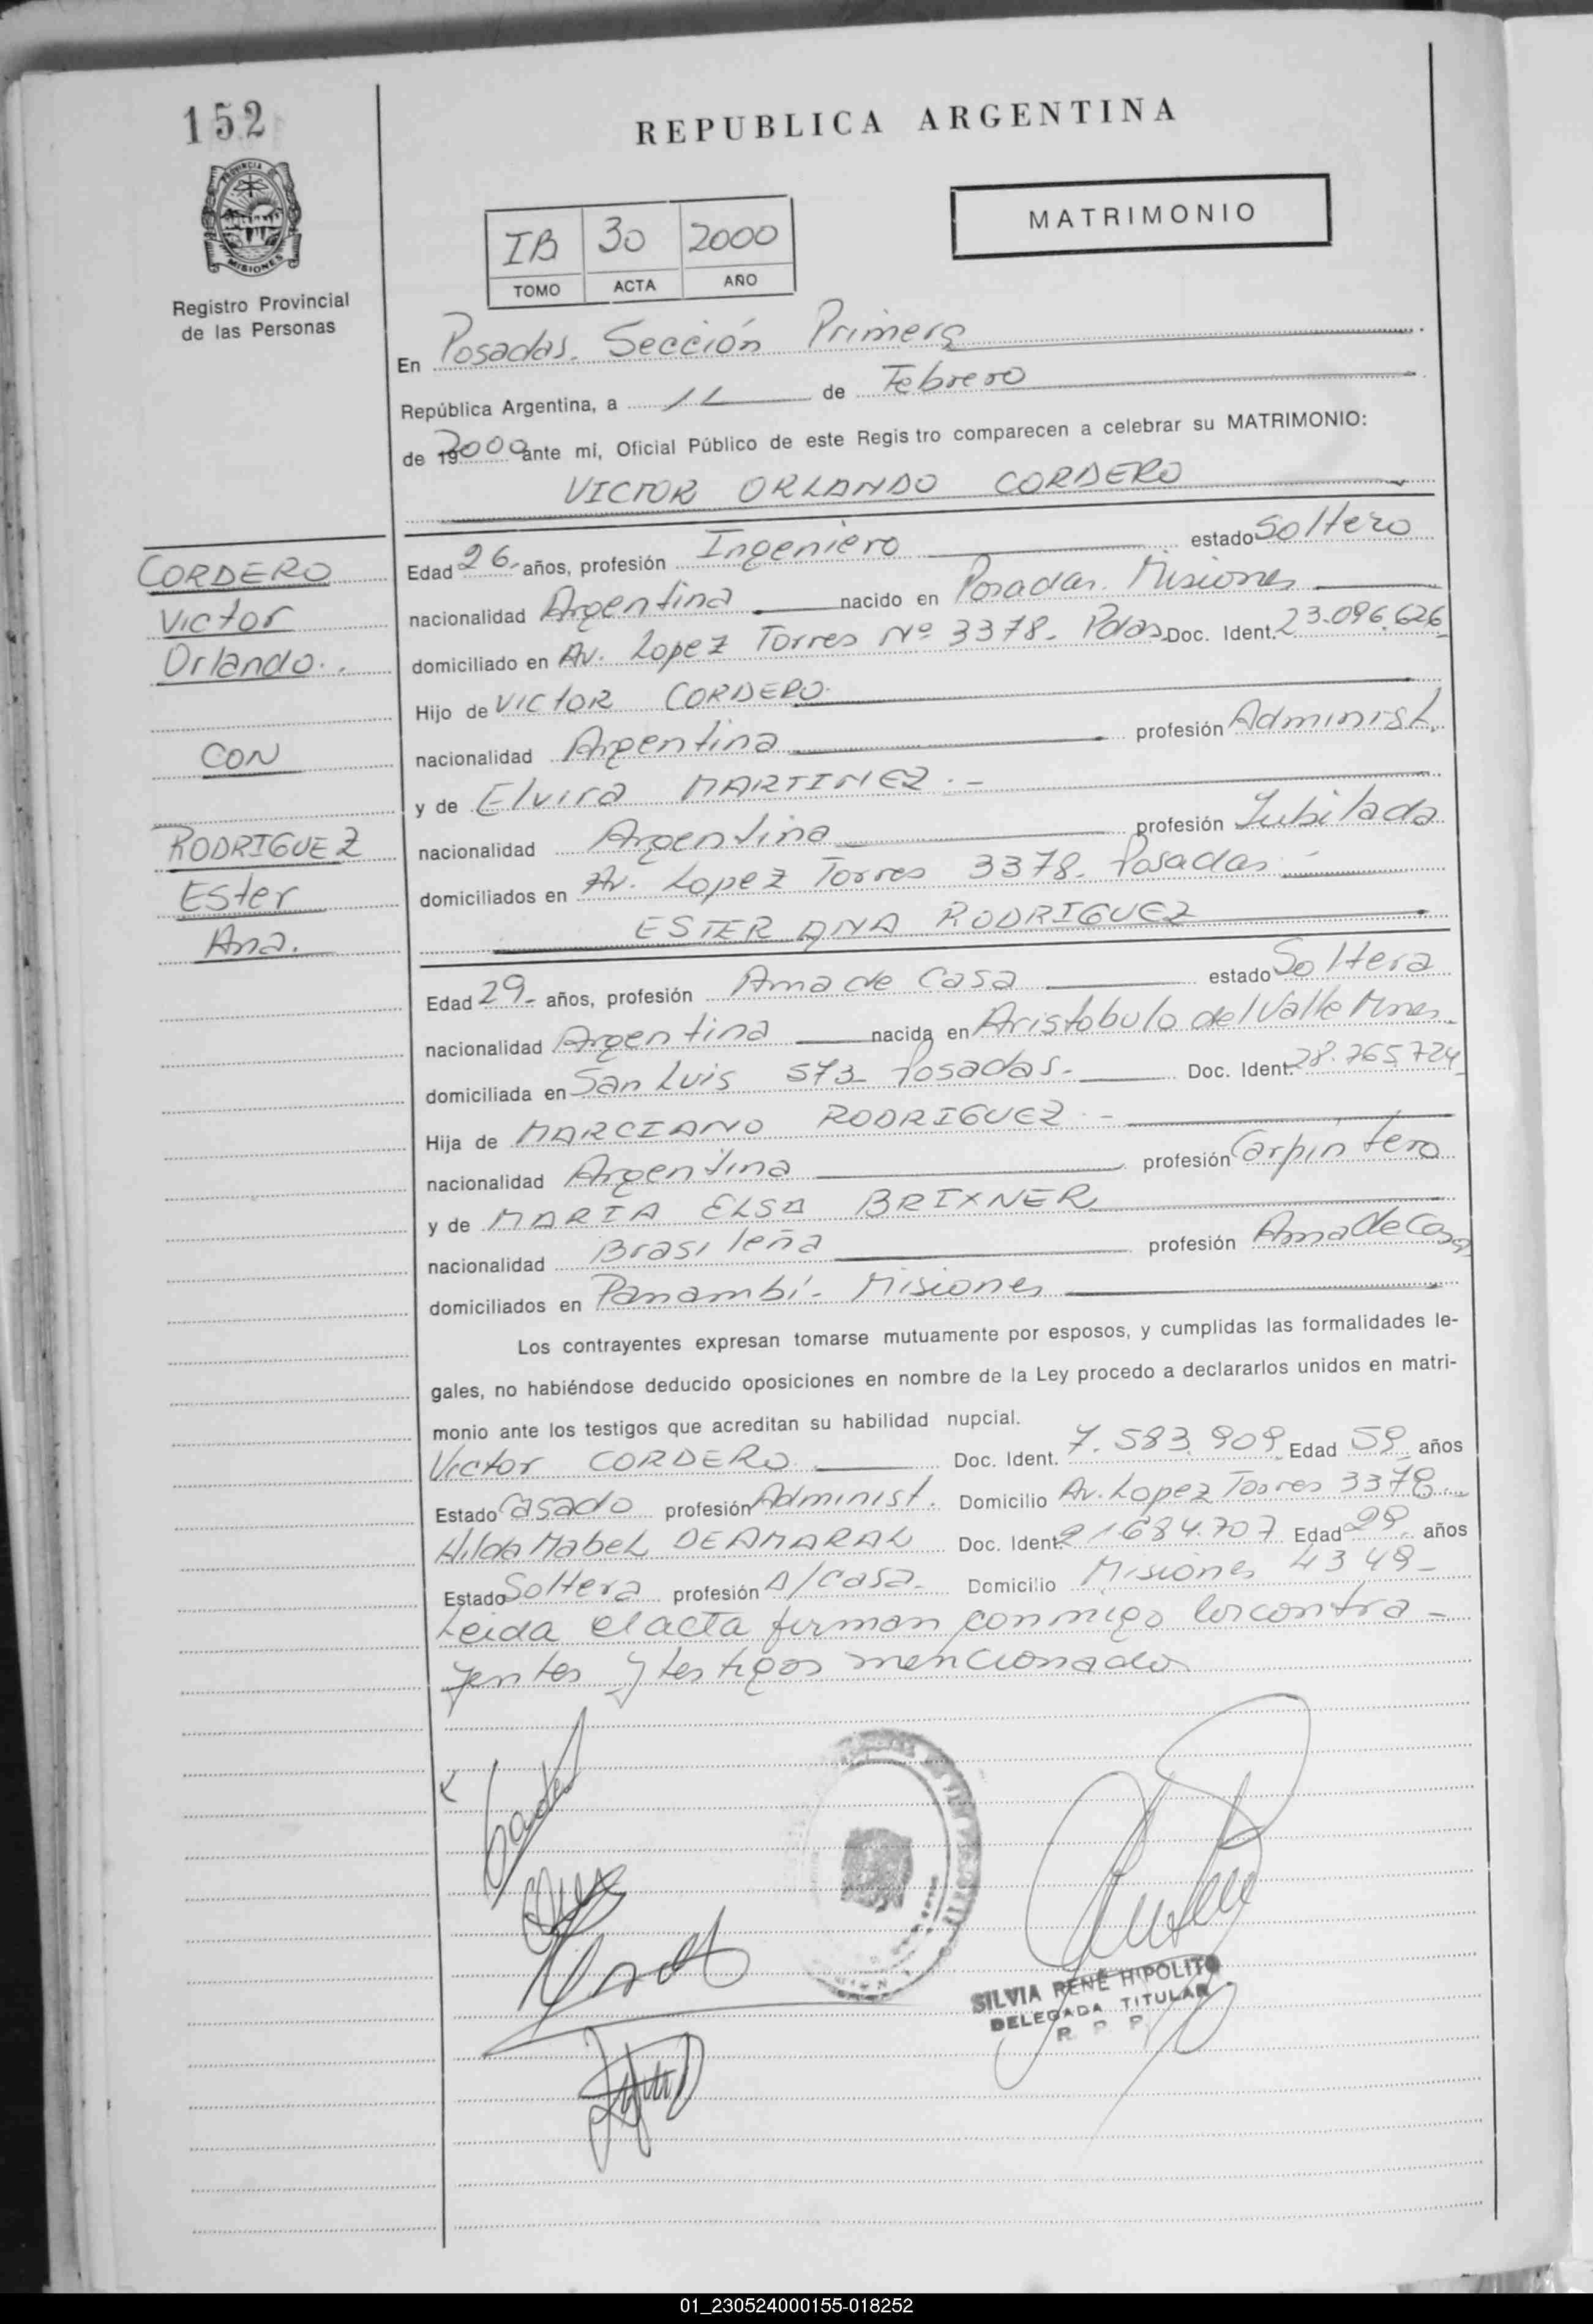 152
REPUBLICA ARGENTINA
MATRIMONIO
IB 30 2000
TOMO ACTA AÑO
PROVINCIA DE
MISIONES
Registro Provincial
de las Personas
En Posadas. Sección Primera
República Argentina, a 11 de Febrero
de 2000 ante mi, Oficial Público de este Regis tro comparecen a celebrar su MATRIMONIO:
VICTOR ORLANDO CORDERO
CORDERO
Victor
Orlando..
CON
RODRIGUEZ
Ester
Ana.
Edad 26- años, profesión Ingeniero estado Soltero
nacionalidad Argentina nacido en Posadas. Misiones
domiciliado en Av. Lopez Torres Nº 3378- Pdas Doc. Ident. 23.096.626
Hijo de VICTOR CORDERO
nacionalidad Argentina profesión Administ.
y de Elvira MARTINEZ.-
nacionalidad Argentina profesión Jubilada
domiciliados en Av. Lopez Torres 3378- Posadas
ESTER ANA RODRIGUEZ
Edad 29- años, profesión Ama de Casa estado Soltera
nacionalidad Argentina nacida en Aristobulo del Valle Mnes.
domiciliada en San Luis 573- Posadas- Doc. Ident. 28.765.724
Hija de MARCIANO RODRIGUEZ.-
nacionalidad Argentina profesión Carpintero
y de MARIA ELSA BRIXNER
nacionalidad Brasileña profesión Ama de Casa
domiciliados en Panambí- Misiones
Los contrayentes expresan tomarse mutuamente por esposos, y cumplidas las formalidades le-
gales, no habiéndose deducido oposiciones en nombre de la Ley procedo a declararlos unidos en matri-
monio ante los testigos que acreditan su habilidad nupcial.
Victor CORDERO Doc. Ident. 7.583.909 Edad 59 años
Estado Casado profesión Administ. Domicilio Av. Lopez Torres 3378
Hilda Mabel DEAMARAL Doc. Ident. 21.684.707 Edad 29 años
Estado Soltera profesión A/casa- Domicilio Misiones 4349-
Leida el acta firman conmigo los contra-
yentes y testigos mencionados
SILVIA RENÉ HIPOLITO
DELEGADA TITULAR
R. P. P.
01_230524000155-018252